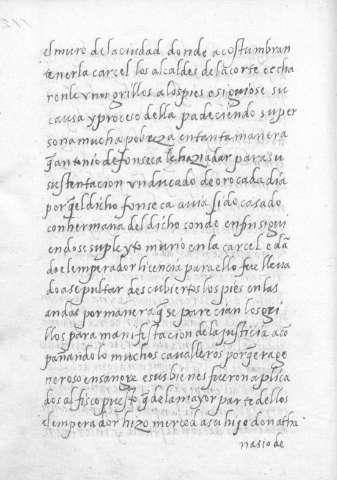 el muro de la ciudad donde acostumbran
tener la carcel los alcaldes de la corte e echa
ronle unos grillos a los pies e siguiose su
causa y proceso della padeciendo su per
sona mucha pobreza en tanta manera
q̃ antonio de fonseca le hazia dar para su
sustentacion un ducado de oro cada dia
por q̃ el dicho fonseca avia sido casado
con hermana del dicho conde en fin sigui
endose su pleyto murio en la carcel e da
do el emperador licencia para ello fue lleva
do a sepultar descubiertos los pies en las
andas por manera q̃ se parecian los gri
llos para manifestacion de la justicia aco
pañando lo muchos cavalleros porq̃ era ge
neroso en sangre e sus bienes fueron aplica
dos al fisco puesto q̃ de la mayor parte dellos
el emperador hizo merced a su hijo don atha
nasio de